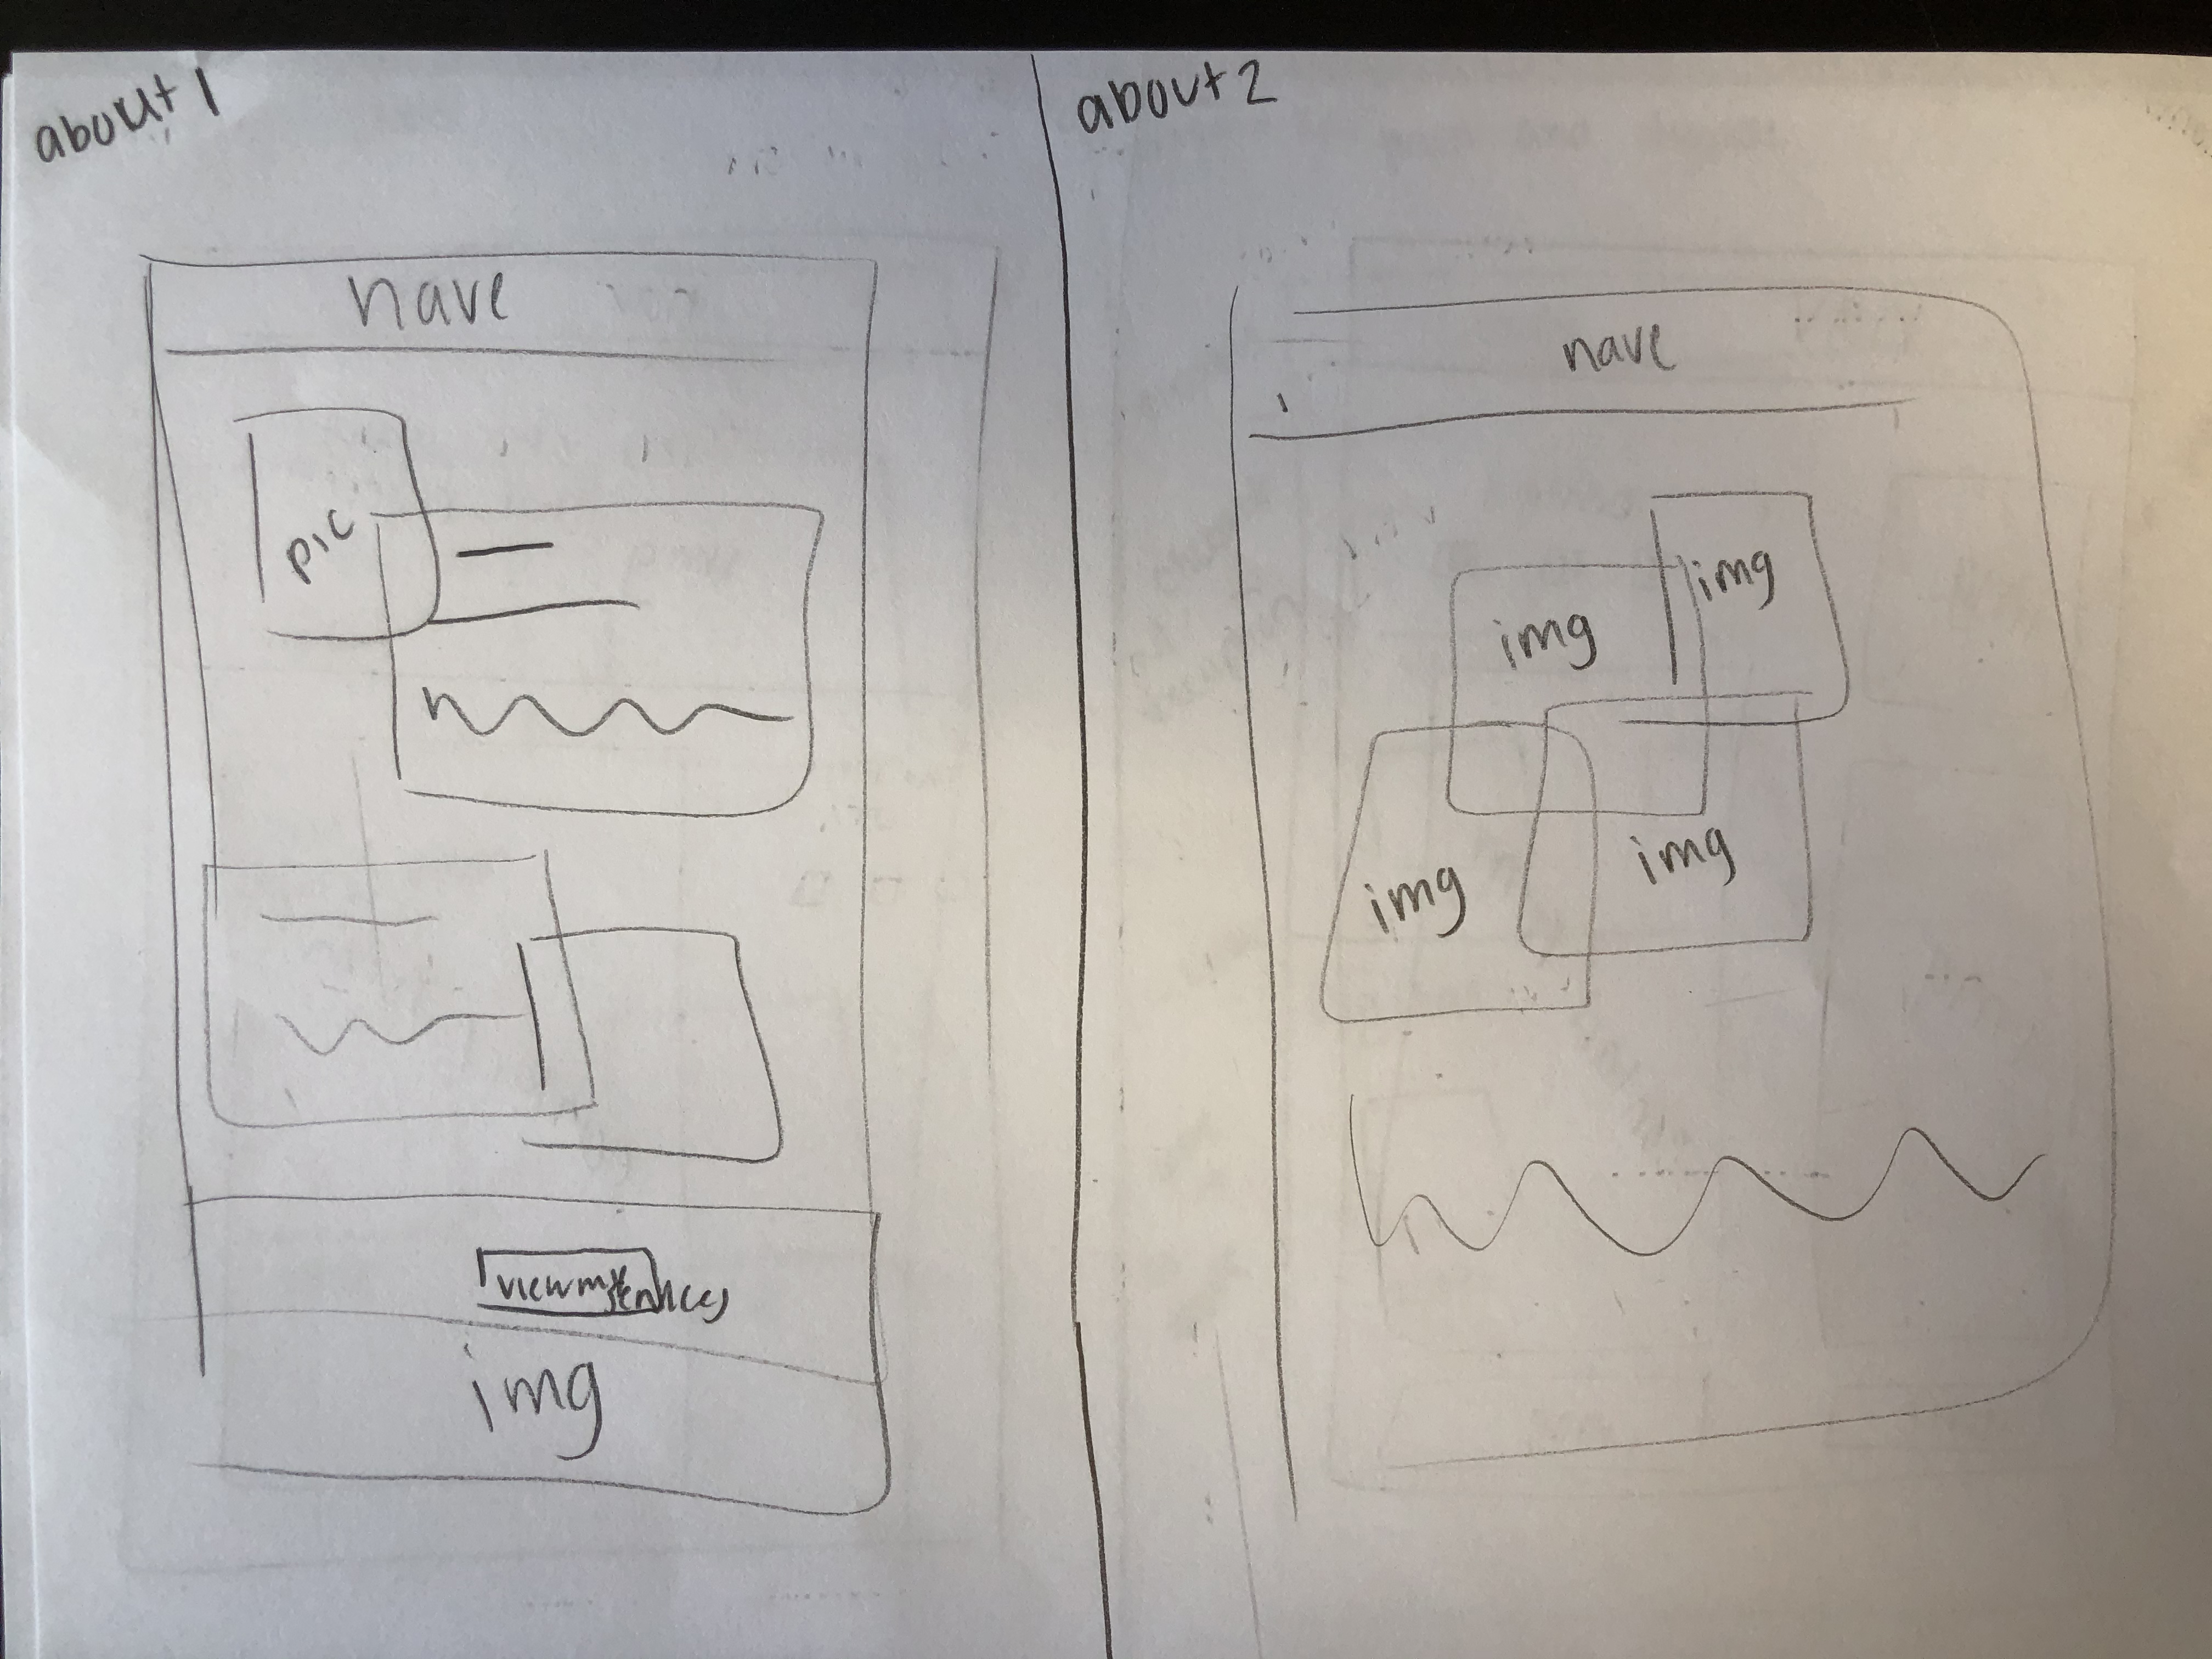 about 1
nave
pic
view my services
img
about 2
nave
img
img
img
img